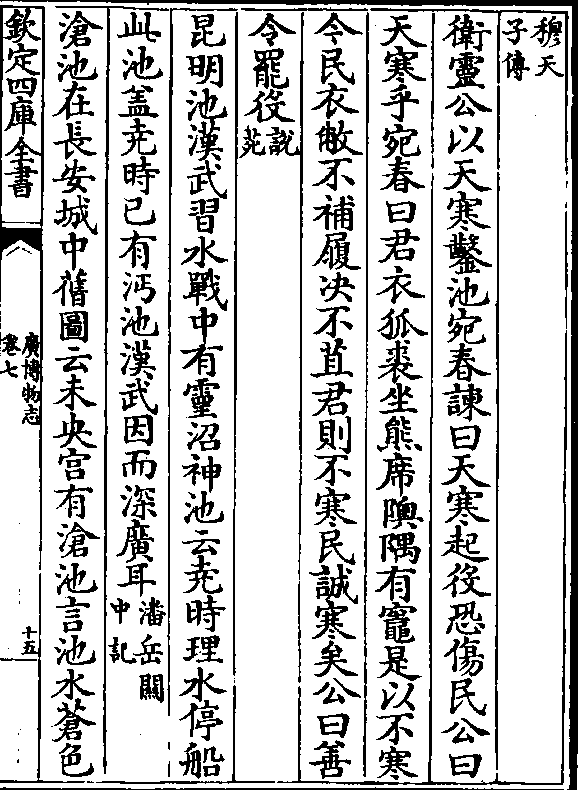 穆天
子傳
衛靈公以天寒鑿池宛春諫曰天寒起役恐傷民公曰
天寒乎宛春曰君衣狐裘坐熊席隩隅有竈是以不寒
今民衣敝不補履决不苴君則不寒民誠寒矣公曰善
令罷役說
苑
昆明池漢武習水戰中有靈沼神池云尭時理水停船
此池盖尭時已有沔池漢武因而深廣耳潘岳關
中記
滄池在長安城中舊圖云未央宫有滄池言池水蒼色
欽定四庫全書
廣博物志
卷七
十五